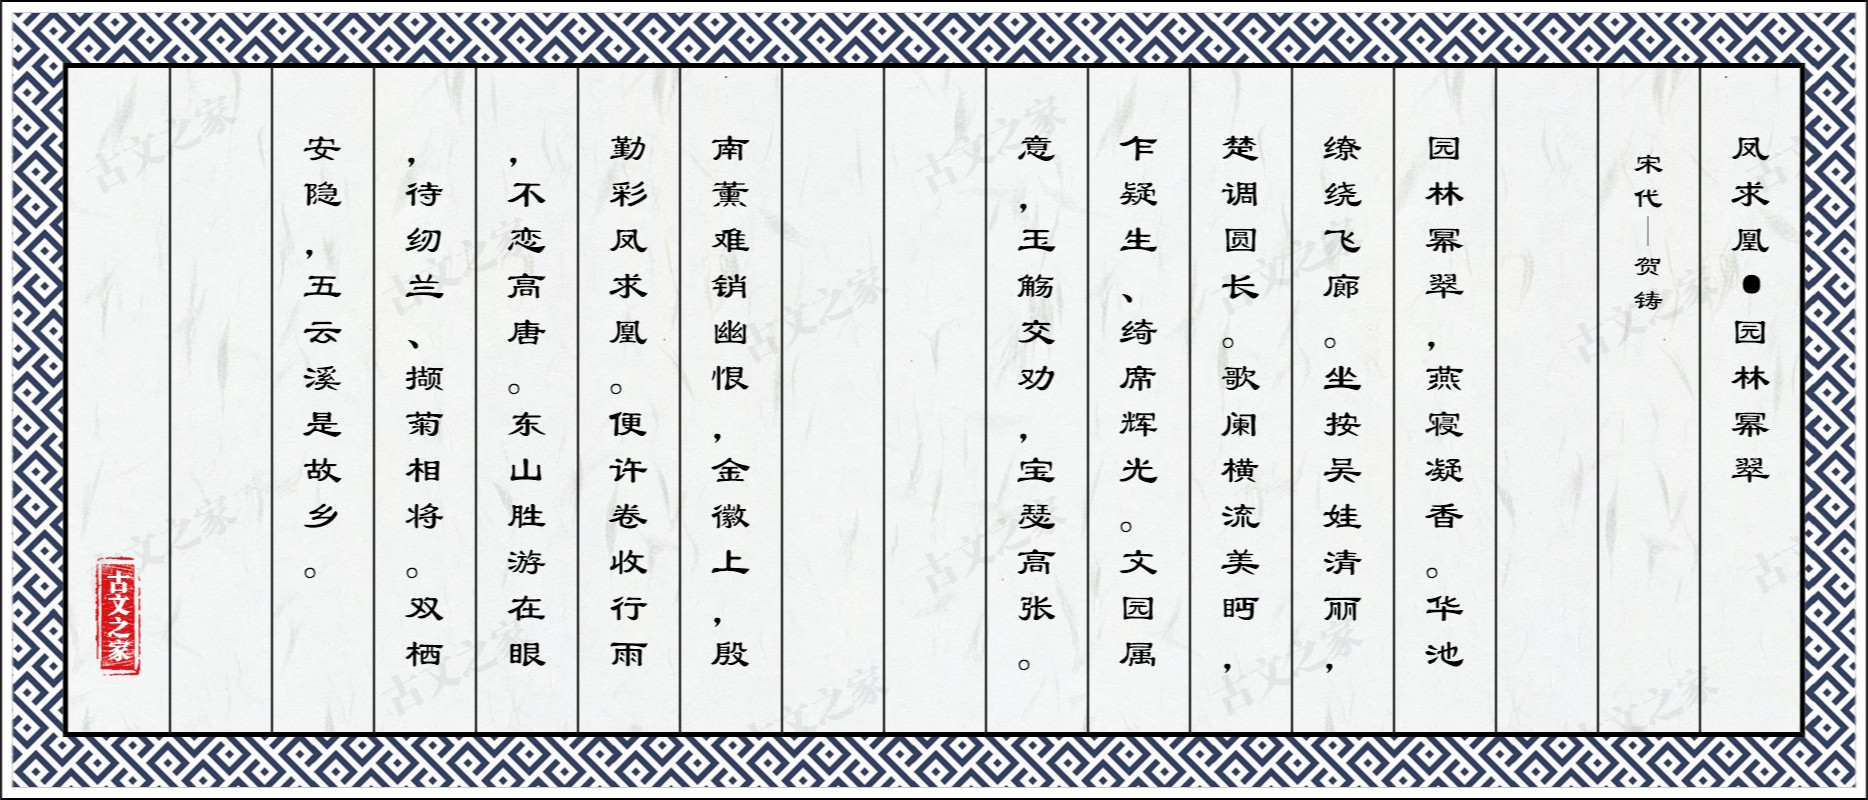 凤求凰●园林幂翠
宋代—贺铸
园林幂翠，燕寝凝香。华池
缭绕飞廊。坐按吴娃清丽，
楚调圆长。歌阑横流美眄，
乍疑生、绮席辉光。文园属
意，玉觞交劝，宝瑟高张。
南薰难销幽恨，金徽上，殷
勤彩凤求凰。便许卷收行雨
，不恋高唐。东山胜游在眼
，待纫兰、撷菊相将。双栖
安隐，五云溪是故乡。
古文之家